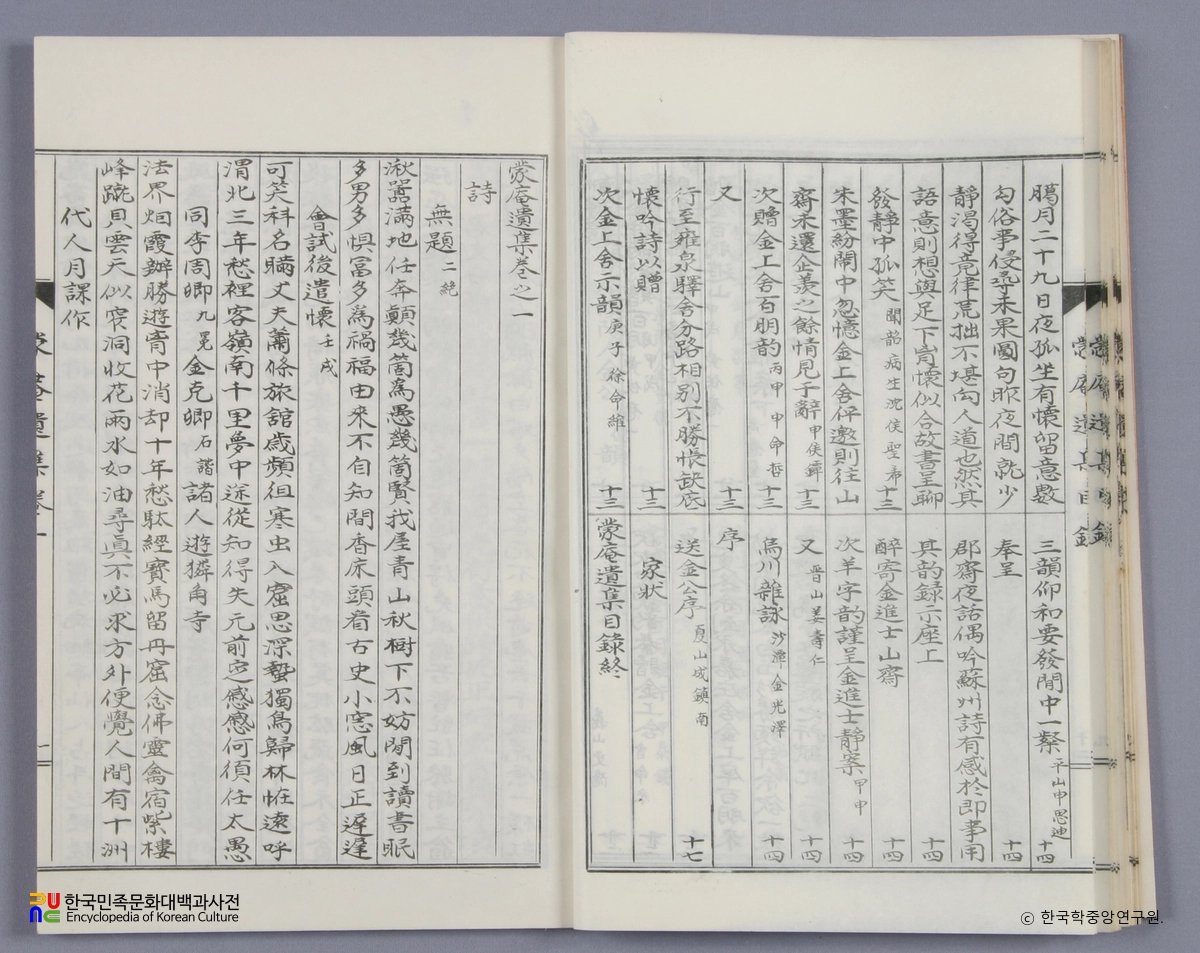 臈月二十九日夜孤坐有懷留意數
勾俗事侵尋未果圖句昨夜間就少
靜渴得竟律荒拙不堪勾人道也然其
語意則想與足下肯懷似合故書呈聊
發靜中孤笑 聞韶病生沈侯聖希 十三
朱墨紛鬧中忽憶金上舍伻邀則往山
齋未還企羨之餘情見于辭 甲侯 十三
次贈金上舍百朋韵 丙甲申命哲 十三
又 十三
行至雍泉驛舍分路相別不勝悵缺底
懷吟詩以贈 十三
次金上舍示韻 庚子徐命維 十三
三韻仰和要發閒中一粲 平山申思迪 十四
奉呈 十四
郡齋夜話偶吟蘇州詩有感於即事用
其韵録示座上 十四
醉寄金進士山齋 十四
次羊字韵謹呈金進士靜案 甲申 十四
又 晋山姜壽仁 十四
烏川雜詠 沙潭金光澤 十四
序
送金公序 夏山成鎮南 十七
家狀
蒙庵遺集目錄終
蒙庵遺集卷之一
詩
無題 二絶
湫嚣滿地任奔顛幾箇爲愚幾箇賢我屋青山秋樹下不妨閒到讀書眠
多男多惧富多爲禍福由来不自知間香床頭看古史小窓風日正遲遲
會試後遣懷 壬戌
可笑科名瞞丈夫蕭條旅舘歲頻徂寒虫入窟思深蟄獨鳥歸林恠遠呼
渭北三年愁裡客嶺南千里夢中途從知得失元前定感感何須任太愚
同李周卿 九冕 金克卿 石諧 諸人遊獜角寺
法界烟霞辦勝遊靑中消却十年愁馱經寶馬留丹窟念佛靈禽宿紫樓
峰蹴貝雲天似窄洞收花雨水如油尋眞不必求方外便覺人間有十洲
代人月課作
蒙菴遺集卷一
한국민족문화대백과사전
Encyclopedia of Korean Culture
© 한국학중앙연구원.